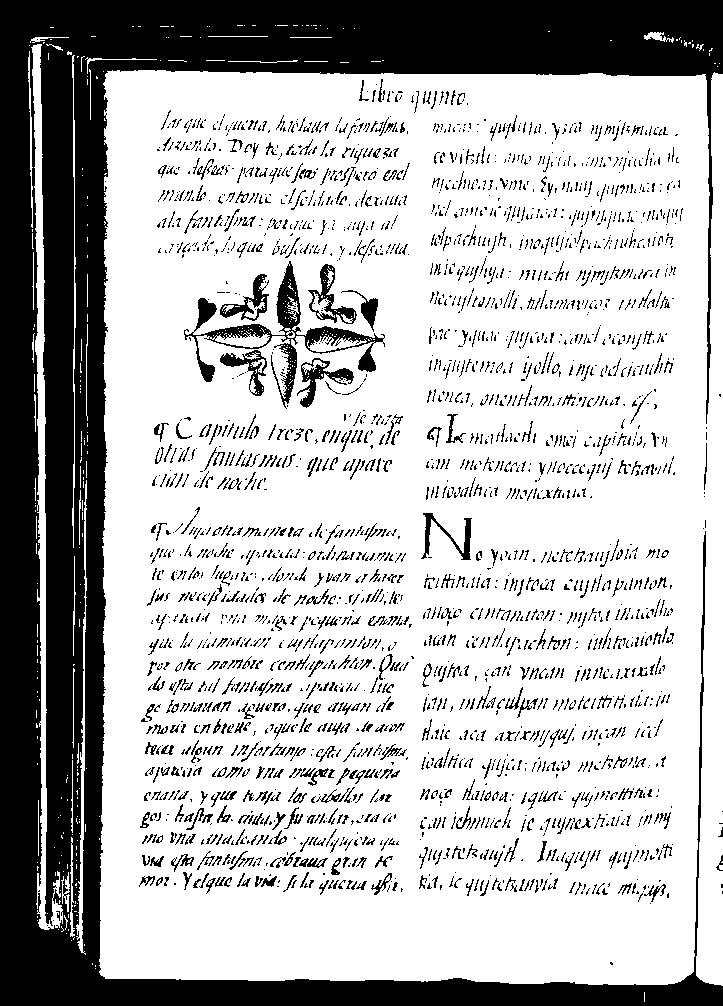 Libro qujnto.
las que el queria, hablaua la fantasma,
diziendo. Doy te, toda la riqueza
que desseas: para que seas prospero enel
mundo. entonce el soldado, dexaua
ala fantasma: porque ya auja al
cançado, lo que buscaua, y desseaua.
¶ Capitulo treze, enque, de
y se trata
otras fantasmas: que apare
cian de noche.
¶ Auja otra manera de fantasma,
que de noche aparecia: ordinariamen
te enlos lugares, donde yuan a hazer
sus necessidades de noche: si alli, les
aparecia vna muger pequeña enana,
que la llamauan cujtlapanton, o
por otro nombre centlapachton. Quã
do esta tal fantasma aparecia. lue
go tomauan aguero, que aujan de
morir enbreue, o que le auja de acon
tecer algun infortunjo: esta fantasma,
aparecia como vna muger pequeña
enana, y que tenja los cabellos lar
gos: hasta la cinta, y su andar, era co
mo vna anadeando: qualqujera que
via esta fantasma, cobraua gran te
mor. Y el que la via: si la queria asir,
nel amo ic qujcaca:
tolpachiujti, inoqujtolpachiuhcaioti
miequjhya: muchi njmjtzmaca in
necujltonolli,
pac yquac qujcoa: canel oconjttac
inqujtemoa iyollo,
nenca, onentlamattinenca. &c.
¶ Ic matlactli omei capitulo, vn
can moteneoa: ynoccequj tetzavitl,
iniooaltica monextiaia.
No yoan, netetzaujloia mo
teittitiaia: injtoca cujtlapanton,
anoço cintanaton: mjtoa inacolho
acan centlapachton: iuhtocaiotilo.
Qujtoa, çan vncan inneaxixalo
ian, intlaçulpan moteittitiaia: in
tlaic aca axixmjquj, inçan icel
iooaltica qujça: inaço metztona, a
noço tlaiooa: iquac qujmottitia:
çan iehmuch ic qujnextiaia inmj
qujztetzaujtl. Inaqujn qujmotti
tia, ic qujtetzanvia inace mjqujz,